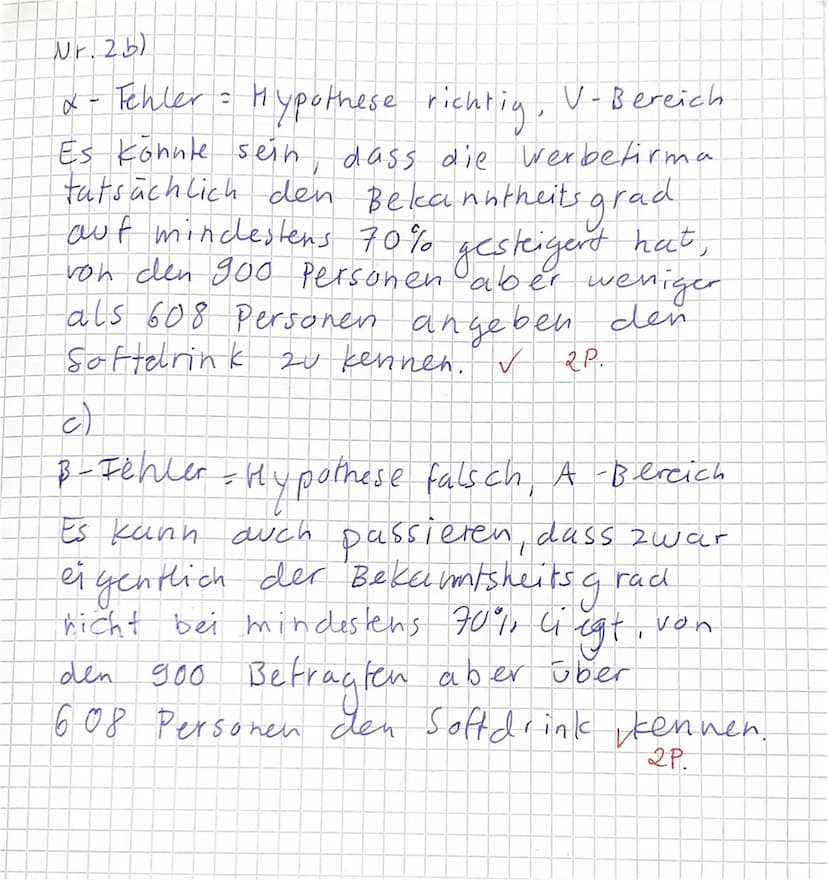 Nr. 2b)
α - Fehler = Hypothese richtig, V-Bereich
Es könnte sein, dass die Werbefirma
tatsächlich den Bekanntheitsgrad
auf mindestens 70% gesteigert hat,
von den 900 Personen aber weniger
als 608 Personen angeben den
Softdrink zu kennen. ✓ 2P.
c)
β-Fehler = Hypothese falsch, A-Bereich
Es kann auch passieren, dass zwar
eigentlich der Bekanntsheitsgrad
nicht bei mindestens 70% liegt, von
den 900 Befragten aber über
608 Personen den Softdrink ✓ kennen.
2P.